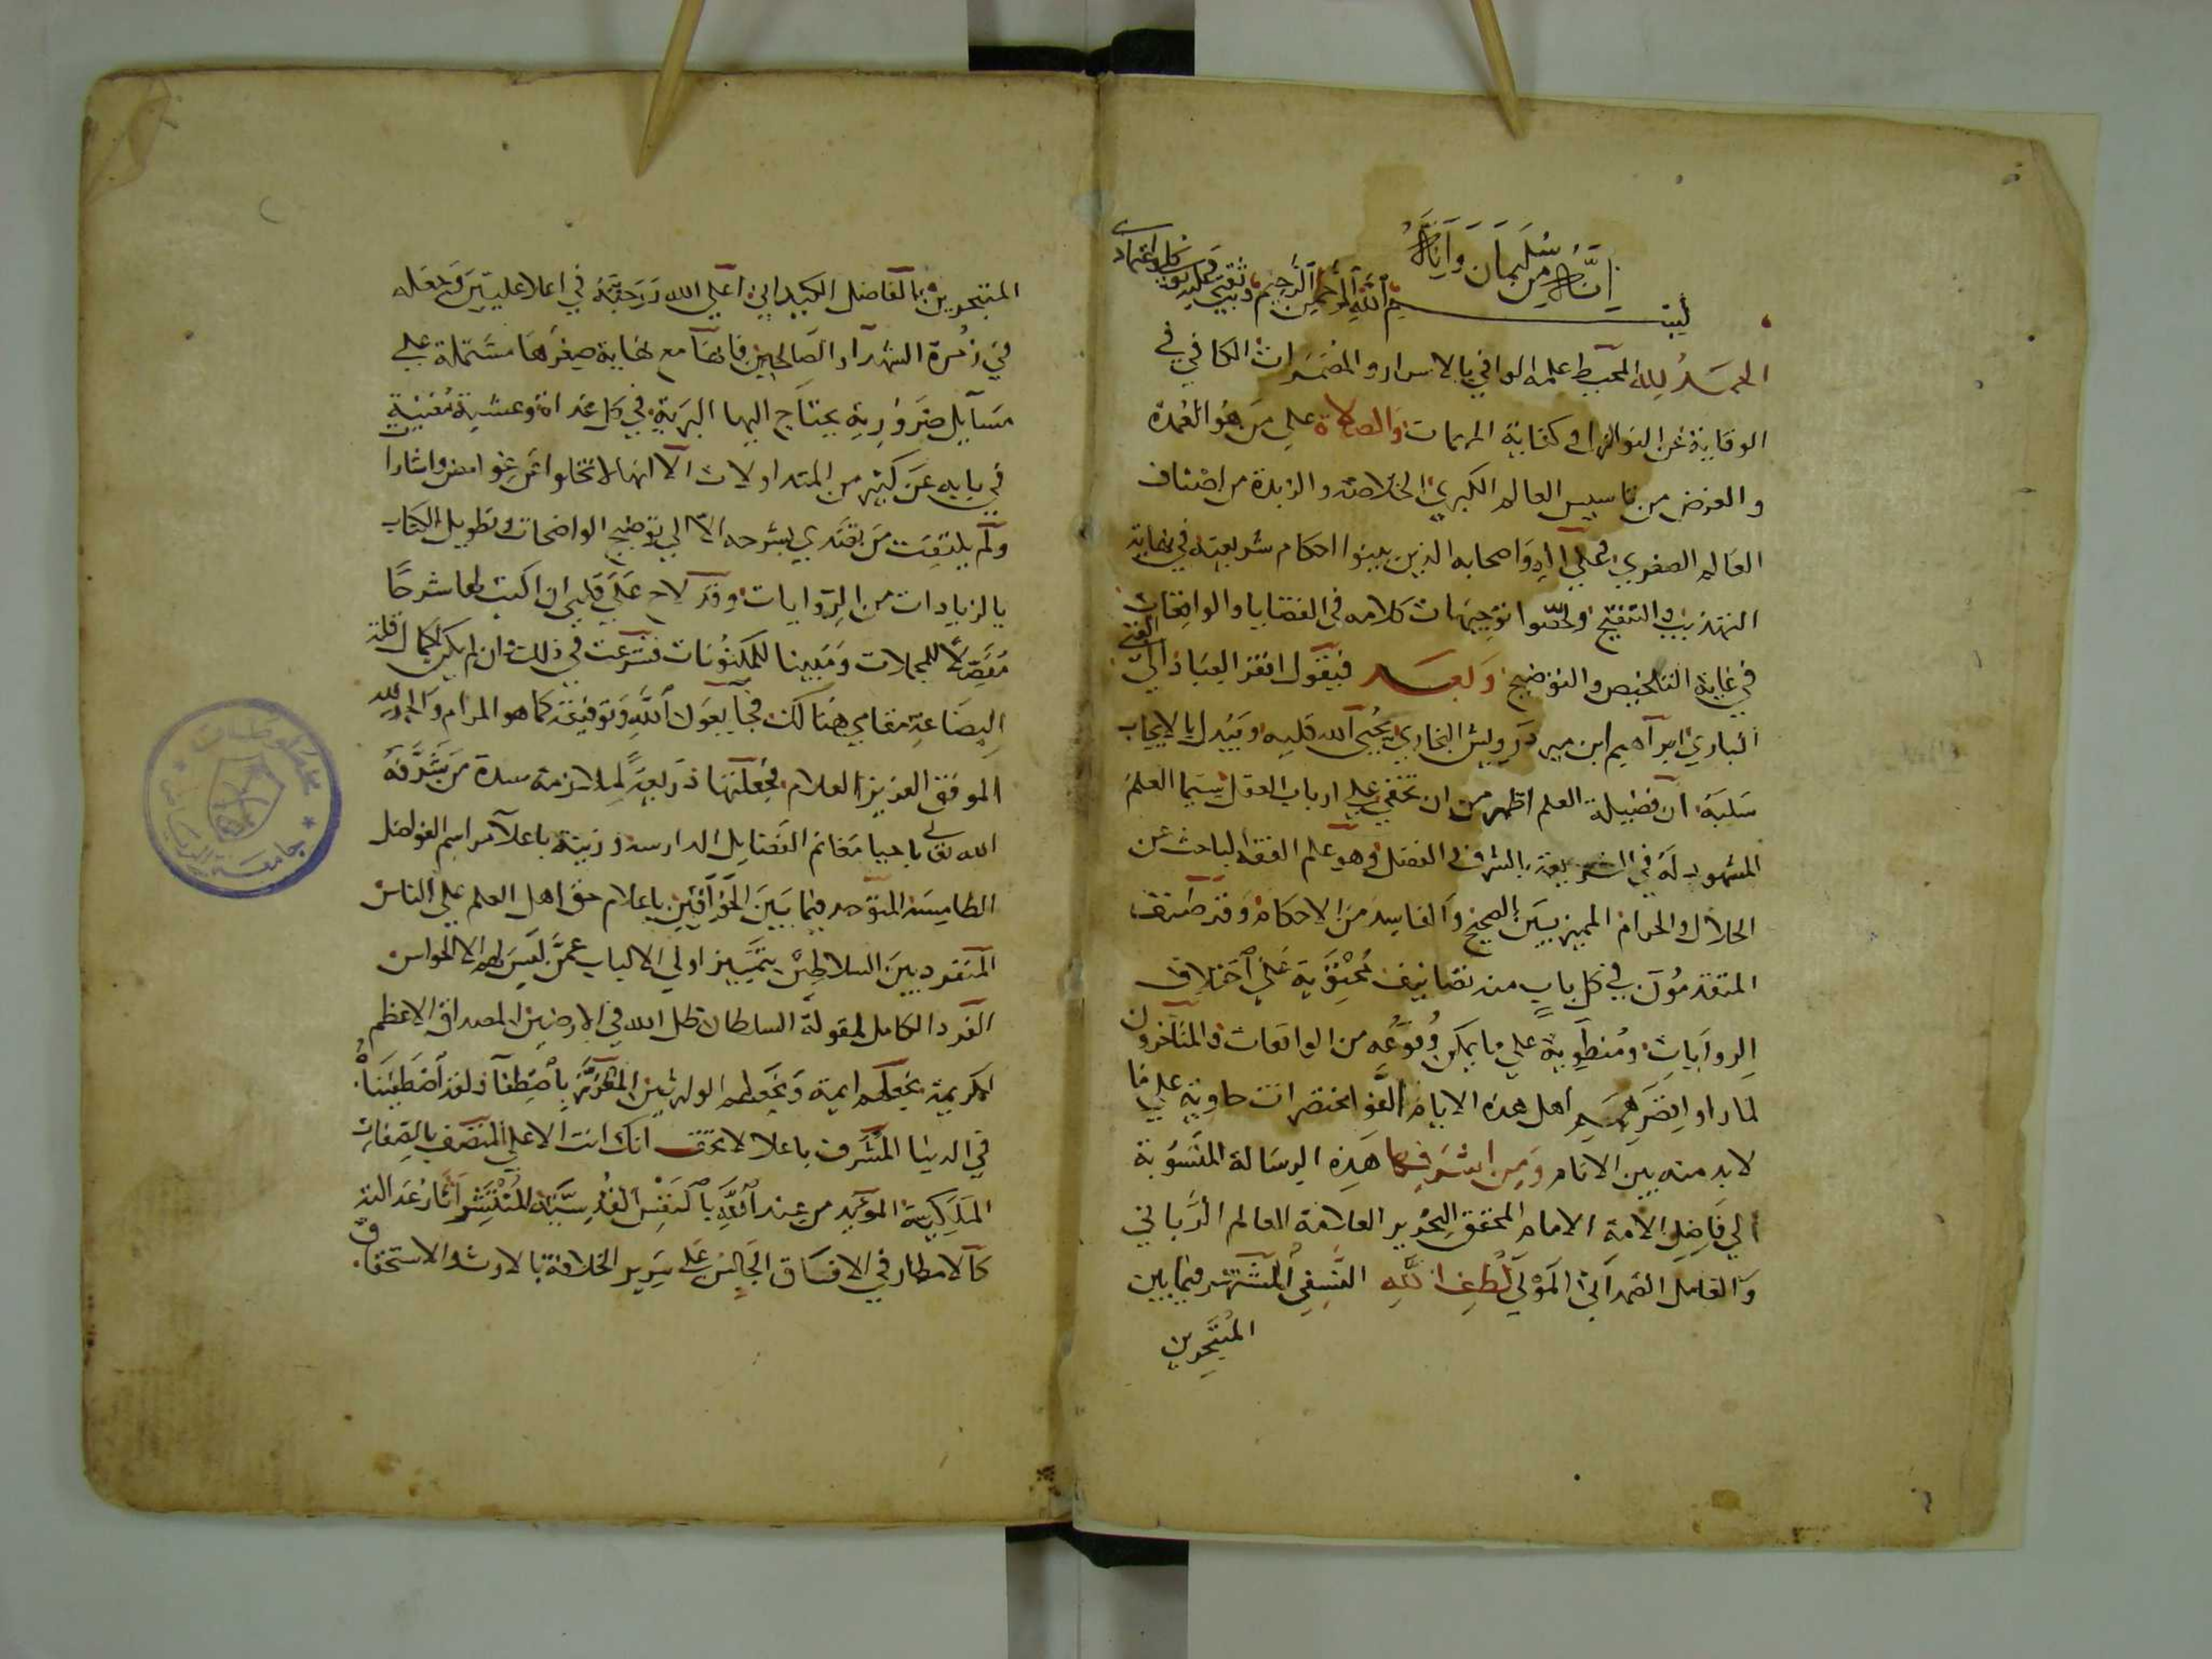 إنه من سليمان وإنه
بسم الله الرحمن الرحيم وبه ثقتي وعليه توكلي واعتمادي
الحمد لله المحيط علمه الوافي بالاسرار والمضمرات الكافي في
الوقاية عن النوازل في كفاية المهمات والصلاة على من هو العمدة
والغرض من تاسيس العالم الكبري الخلاصة والزبدة من اصناف
العالم الصغري وعلي اله واصحابه الذين بينوا احكام شريعته في نهاية
التهذيب والتنقيح ولخصوا توجيهات كلامه في القضايا والواقعات
في غاية التلخيص والتوضيح وبعد فيقول افقر العباد الي الغني
الباري ابراهيم ابن مير درويش البخاري يحيي الله قلبه ويبدل بالايجاب
سلبه ان فضيلة العلم اظهر من ان تخفي علي ارباب العقل سيما العلم
المشهود له في الشريعة بالشرف والفضل وهو علم الفقه الباحث عن
الحلال والحرام المميز بين الصحيح والفاسد من الاحكام وقد صنف
المتقدمون في كل باب منه تصانيف محتوية علي اختلاف
الروايات ومنطوية علي ما يمكن وقوعه من الواقعات والمتاخرون
لما راوا قصر همم اهل هذه الايام الفوا مختصرات حاوية علي ما
لابد منه بين الانام ومن اشرفها هذه الرسالة المنسوبة
الي فاضل الامة الامام المحقق النحرير العلامة العالم الرباني
والفاضل الصمداني المولي لطف الله النسفي المشتهر فيما بين
المتبحرين
المتبحرين بالفاضل الكيداني اعلي الله درجته في اعلا عليين وجعله
في زمرة الشهدآ والصالحين فانها مع نهاية صغرها مشتملة علي
مسآيل ضرورية يحتاج اليها البرية في كل غداة وعشية مغنية
في بابه عن كثير من المتداولات الا انها لا تخلوا عن غوامض واشارا
ولم يلتفت من تصدي بشرحه الا الي توضيح الواضحات وتطويل الكتاب
بالزيادات من الروايات وقد لاح علي قلبي ان اكتب لها شرحا
مفصلا للمجملات ومبينا للمكنونات فشرعت في ذلك وان لم يكن لكمال قلة
البضاعة مقامي هنالك فجآ بعون الله وتوفيقه كما هو المرام والحمد لله
الموفق العزيز العلام فجعلتها ذريعة لملازمة سدة من شرفه
الله تعالي باحيا معالم الفضايل الدارسة وزينه باعلآ مراسم الفواضل
الطامسة المتوحد فيما بين الخوآقين باعلام حق اهل العلم علي الناس
المتفرد بين السلاطين بتمييز اولي الالباب عمن ليس لهم الا الحواس
الفرد الكامل لمقولة السلطان ظل الله في الارضين المصداق الاعظم
لكريمة نجعلهم ايمة ونجعلهم الوارثين المعزز باصطفآ ولقد اصطفيناه
في الدنيا المشرف باعلا لا تخف انك انت الاعلي المتصف بالصفات
الملكية المويد من عند الله بالنفس القدسية المنتشر آثار عدالته
كالامطار في الافاق الجالس علي سرير الخلافة بالارث والاستحقاق
مخطوطات
جامعة الرياض